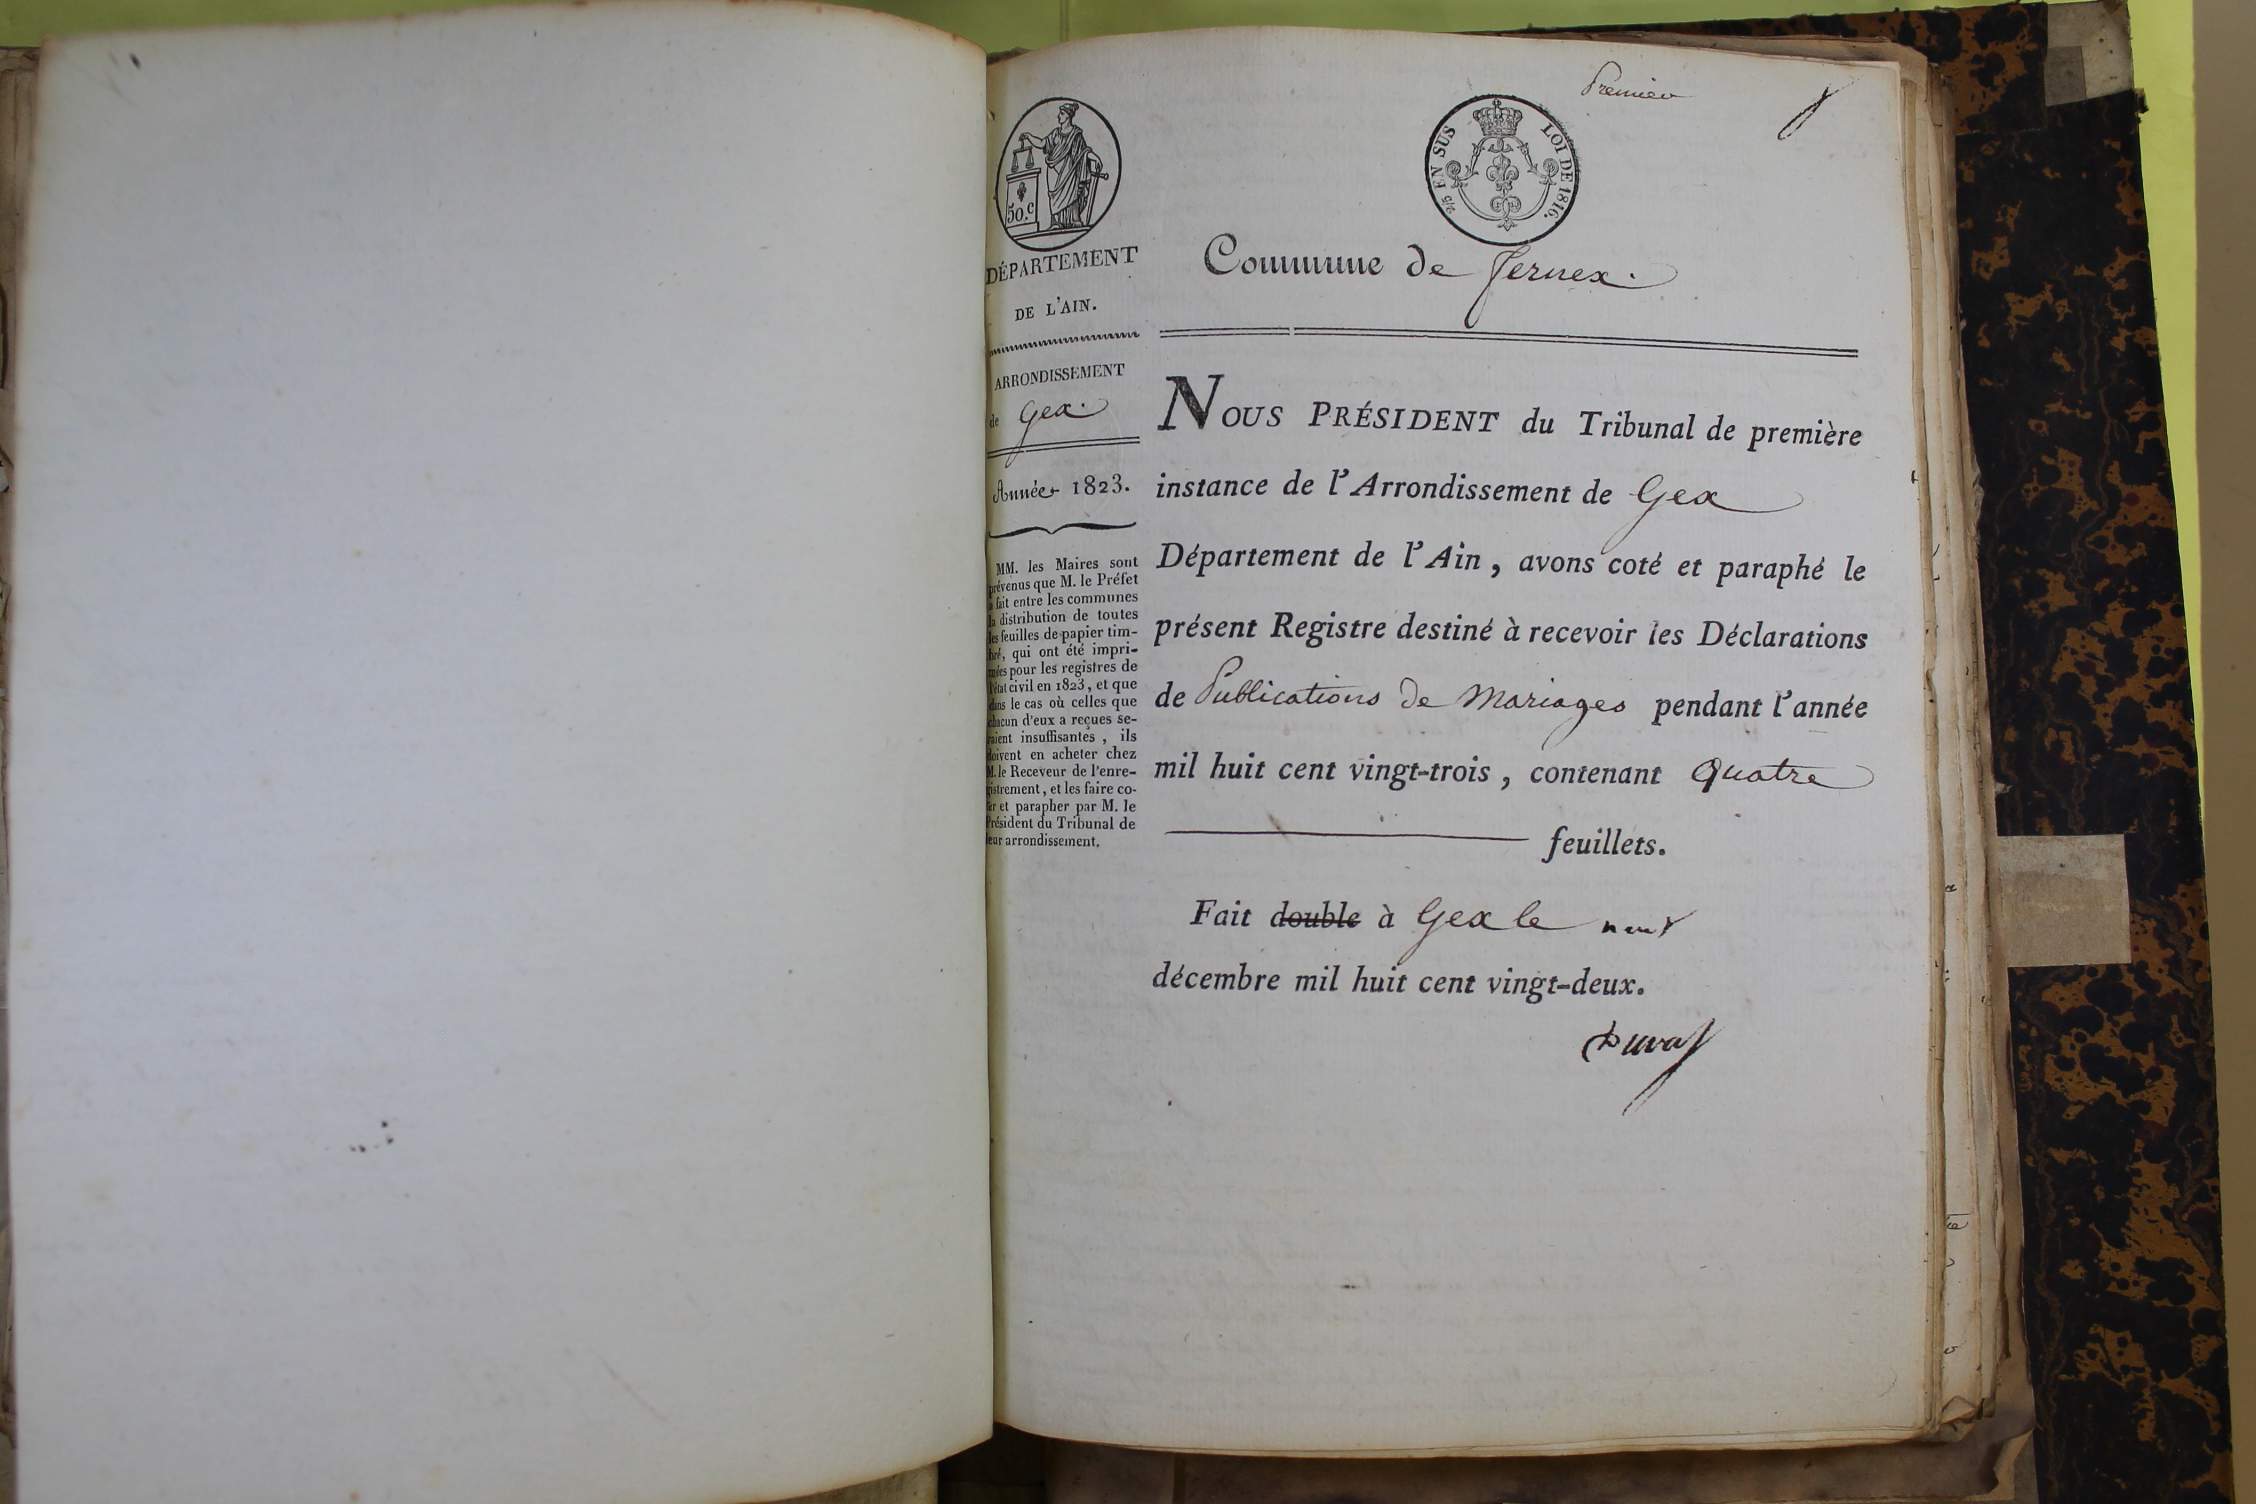 Premier
50.c
2/5 EN SUS
LOI DE 1816.
DÉPARTEMENT
DE L'AIN.
ARRONDISSEMENT
de Gex.
Année 1823.
MM. les Maires sont
prévenus que M. le Préfet
a fait entre les communes
la distribution de toutes
les feuilles de papier tim-
bré, qui ont été impri-
mées pour les registres de
l'état civil en 1823, et que
dans le cas où celles que
chacun d'eux a reçues se-
raient insuffisantes, ils
doivent en acheter chez
M. le Receveur de l'enre-
gistrement, et les faire co-
ter et parapher par M. le
Président du Tribunal de
leur arrondissement.
Commune de Fernex.
NOUS PRÉSIDENT du Tribunal de première
instance de l'Arrondissement de Gex
Département de l'Ain, avons coté et paraphé le
présent Registre destiné à recevoir les Déclarations
de Publications de Mariages pendant l'année
mil huit cent vingt-trois, contenant Quatre
feuillets.
Fait double à Gex le neuf
décembre mil huit cent vingt-deux.
Duval